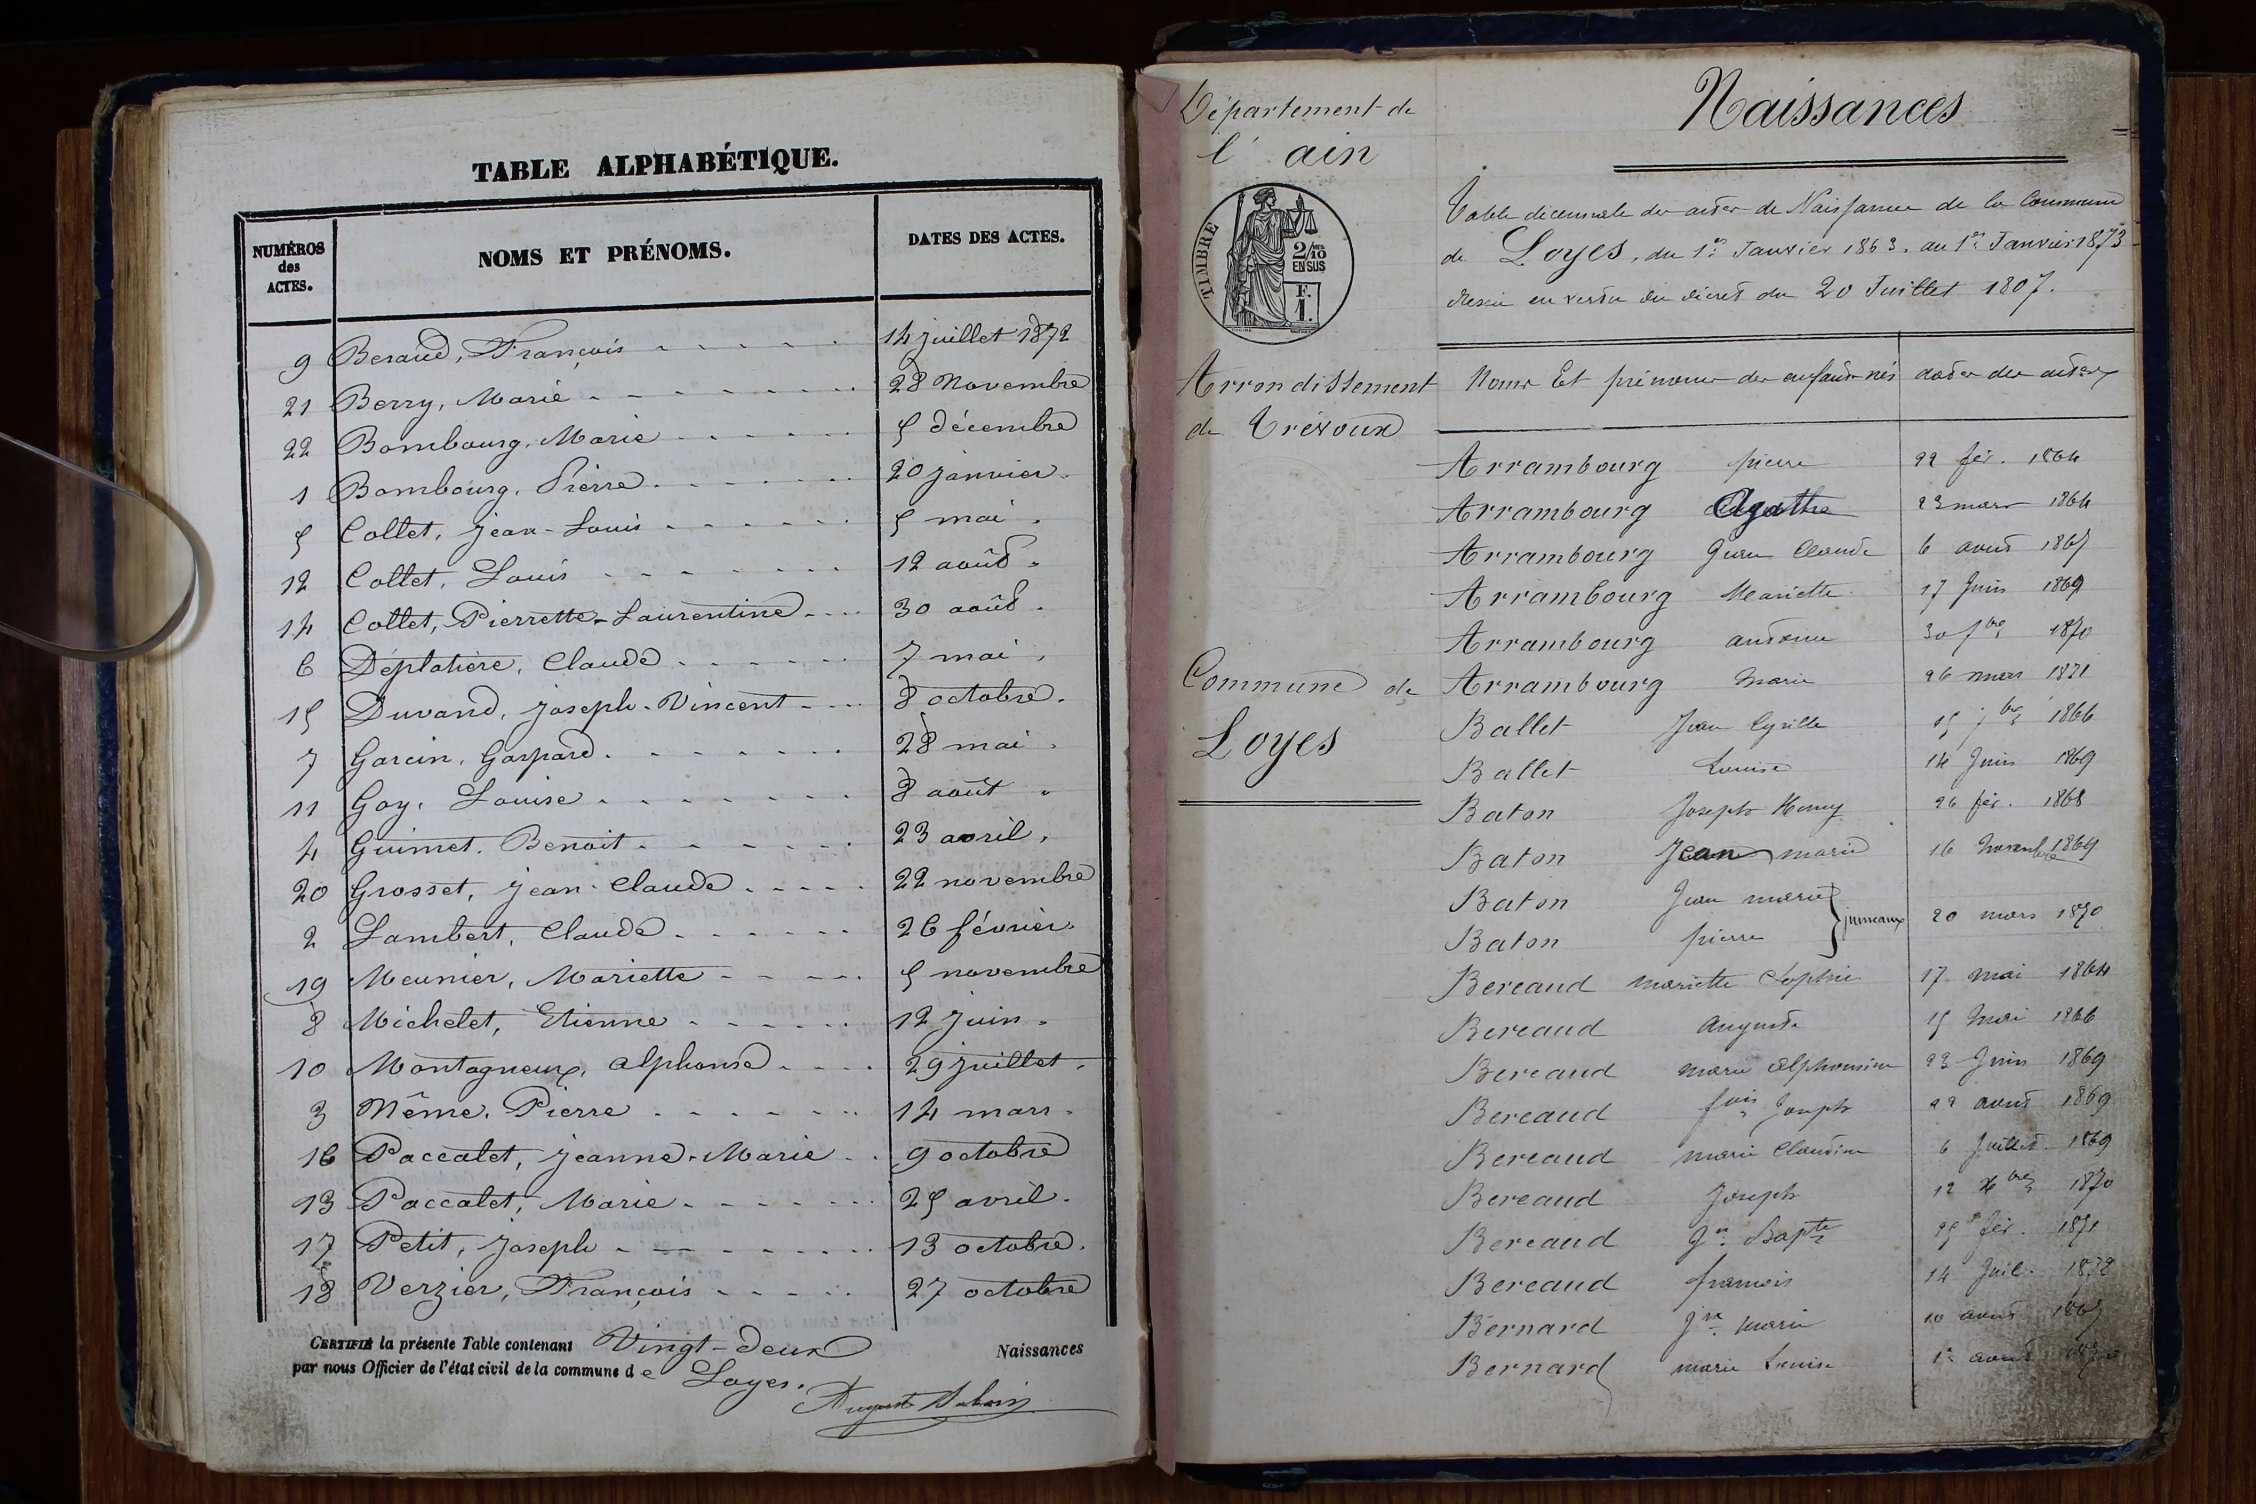 TABLE ALPHABÉTIQUE.
NUMÉROS
des
ACTES.
NOMS ET PRÉNOMS.
DATES DES ACTES.
9 Beraud, François 14 juillet 1872
21 Berry, Marie 28 Novembre
22 Bombourg, Marie 5 décembre
1 Bombourg, Pierre 20 janvier
5 Collet, Jean-Louis 5 mai
12 Collet, Louis 12 août
14 Collet, Pierrette-Laurentine 30 août
6 Déplatière, Claude 7 mai
15 Duvand, Joseph-Vincent 8 octobre
7 Garcin, Gaspard 28 mai
11 Goy, Louise 8 août
4 Guimet, Benoit 23 avril
20 Grosset, Jean-Claude 22 novembre
2 Lambert, Claude 26 février
19 Meunier, Mariette 5 novembre
8 Michelet, Etienne 12 juin
10 Montagneux, Alphonse 29 juillet
3 Même, Pierre 14 mars
16 Paccalet, Jeanne-Marie 9 octobre
13 Paccalet, Marie 25 avril
17 Petit, Joseph 13 octobre
18 Verzier, François 27 octobre
CERTIFIÉ la présente Table contenant Vingt-deux Naissances
par nous Officier de l'état civil de la commune de Loyes.
Département de
l'ain
TIMBRE
2/10
EN SUS
F.
1.
Arrondissement
de Trévoux
Commune de
Loyes
Naissances
Table décennale des actes de Naissance de la Commune
de Loyes, du 1er Janvier 1863 au 1er Janvier 1873
en vertu du décret du 20 Juillet 1807.
Noms Et prénoms des enfants nés dates des actes
Arrambourg pierre 22 fév. 1864
Arrambourg Agathe 23 mars 1864
Arrambourg Jean Claude 6 août 1867
Arrambourg Mariette 17 Juin 1869
Arrambourg 30 7bre 1870
Arrambourg Marie 26 mars 1871
Ballet Jean Cyrille 15 1866
Ballet Louise 14 Juin 1869
Baton Joseph Remy 26 fév. 1868
Baton Jean marie 16 Novembre 1869
Baton Jean marie
Baton pierre jumeaux 20 mars 1870
Bereaud mariette Sophie 17 mai 1864
Bereaud Auguste 15 Mai 1866
Bereaud marie Alphonsine 23 Juin 1869
Bereaud fois Joseph 22 août 1869
Bereaud marie Claudine 6 Juillet 1869
Bereaud Joseph 12 Xbre 1870
Bereaud Jn Bapte 25 fév. 1871
Bereaud francois 14 Juil. 1872
Bernard Jne marie 10 août
Bernard marie Louise 1er août